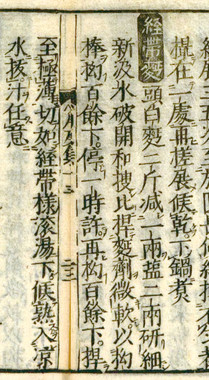 攪在一處再搓展候乾下鍋煮
経帶麵 頭白麵二斤減二兩塩二兩研細
新汲水破開和搜比捍麵劑微軟以拗
棒拗百餘下停一時許再拗百餘下捍
至極薄切如経帶樣滚湯下候熟入凉
水拔汁任意